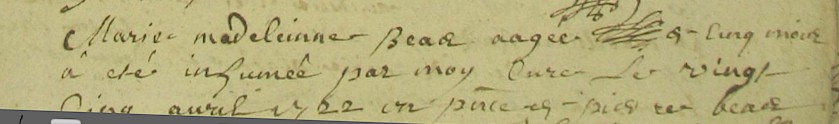 Marie madeleinne Bead aageé de Cinq mois
a eté inhumeé par moy Curé Le vingt
Cinq avril 1722 en pñce de pierre bead